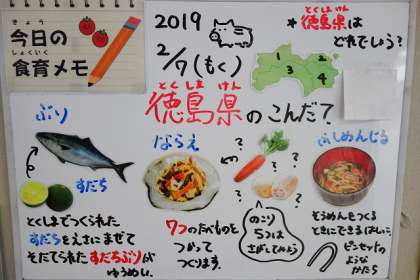 きょう
今日の
しょくいく
食育メモ
2019
2/7(もく)
とくしまけん
*徳島県は
どれでしょう?
1
2
3
4
とくしまけん
徳島県のこんだて
ぶり
すだち
ならえ
ふしめんじる
?
?
?
?
?
とくしまでつくられた
すだちをえさにまぜて
そだてられたすだちぶりが
ゆうめい。
7つのたべものを
つかって
つくります。
のこり
5つは
さがしてみよう
そうめんをつくる
ときにできるはしっこ
ピンセットの
ような
かたち